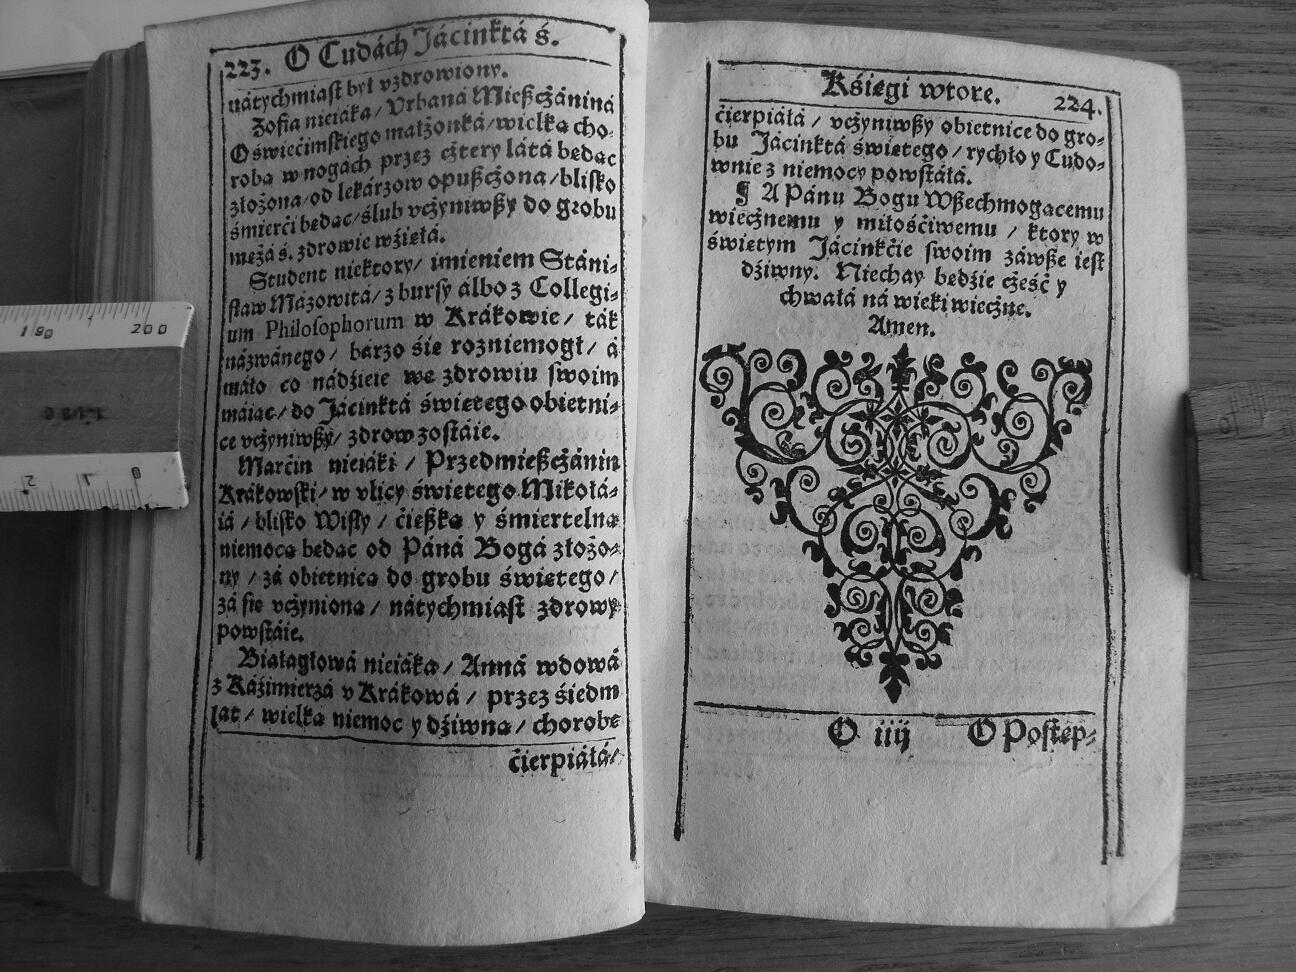 223. O Cudách Jácinktá ś.
nátychmiast był vzdrowiony.
Zofia nieiáka / Vrbaná Mieszcżániná
Oświećimskiego małżonká / wielką cho-
robą w nogách przez cżtery látá będąc
złożona / od lekárzow opuszcżona / blisko
śmierći będąc / ślub vcżyniwszy do grobu
mężá ś. zdrowie wźięłá.
Student niektory / imieniem Stáni-
sław Mázowitá / z bursy álbo z Collegi-
um Philosophorum w Krákowie / ták
názwánego / bárzo się rozniemogł / á
máło co nádźieie we zdrowiu swoim
máiąc / do Jácinktá świętego obietni-
cę vcżyniwszy / zdrow zostáie.
Marćin nieiáki / Przedmieszcżánin
Krákowski / w vlicy świętego Mikołá-
iá / blisko Wisły / ćięszką y śmiertelną
niemocą będąc od Páná Bogá złożo-
ny / zá obietnicą do grobu świętego /
zá się vcżynioną / nátychmiast zdrowy
powstáie.
Białagłowá nieiáka / Anná wdowá
z Káźimierzá v Krákowá / przez śiedm
lat / wielką niemoc y dźiwną / chorobę
ćierpiáłá /
Kśięgi wtore. 224.
ćierpiáłá / vcżyniwszy obietnicę do gro-
bu Jácinktá świętego / rychło y Cudo-
wnie z niemocy powstáłá.
¶ A Pánu Bogu Wszechmogącemu
wiecżnemu y miłośćiwemu / ktory w
świętym Jácinkćie swoim záwsze iest
dźiwny. Niechay będźie cżeść y
chwałá ná wieki wiecżne.
Amen.
O iiij O Postęp-
190 200
2 1 0